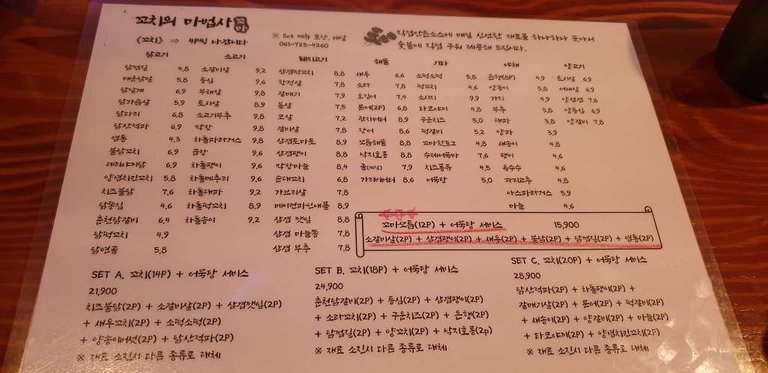 꼬치의 마법사 꼬마
※ Set 메뉴 포장, 배달
061-725-4260
직접만든소스에 매일 신선한 재료를 하나하나 꽂아서
숯불에 직접 구워 제공해 드립니다.
(꼬치) ⇒ 4P씩 나갑니다
닭고기 소고기 돼지고기 해물 기타 야채 양고기
닭염통 4,8
매운닭발
닭날개 6,9
닭가슴살 5,9
닭다리 6,8
닭산적파 6,9
염통 4,3
불닭꼬치 6,9
데리야끼닭 6,9
양념치킨꼬치 5,8
치즈불닭 7,6
닭똥집 4,6
춘천닭갈비 6,4
닭껍질 4,9
닭연골 5,8
소갈비살 9,2
등심 9,6
부채살 9,8
토시살
소고기부추 9,8
막창 9,8
차돌파라거스 9,8
곱창 9,6
차돌팽이 9,6
차돌메추리 9,6
차돌대파 9,2
차돌쑥갓
차돌송이 9,2
삼겹떡꼬치 8,8
항정살 7,8
갈매기 7,9
목살 7,5
갈미살 7,8
삼겹토마토 8,9
삼겹팽이 8,8
막창마늘 8,4
순대꼬치 6,8
가브리살 7,8
베이컨파인애플 8,9
삼겹 깻잎 8,8
삼겹 마늘쫑 7,8
삼겹 부추 7,8
새우 6,6
소라 7,8
오징어 7,4
문어(2P) 6,8
참치베이컨
장어 8,6
모듬해물 8,8
낙지호롱 8,8
가리비버터 8,6
소떡소떡 5,8
떡꼬치 4,6
소시지 9,9
타코야끼 4,8
구운치즈 5,0
떡갈비 5,2
꼬마핫도그 4,8
수제어묵바 7,6
치즈퐁듀 4,5
어묵탕 5,0
은행(8P) 4,9
양송이 5,8
가지 4,9
부추 3,8
대파 3,8
양파 3,9
새송이 4,8
팽이 4,6
옥수수 4,6
꽈리고추 4,8
아스파라거스 5,9
마늘 4,6
토시살 6,9
어깨살 6,9
양삼겹 7,6
양등심 6,9
양갈비 7,8
꼬마모듬(12P) + 어묵탕 서비스 15,900
소갈비살(2P) + 삼겹팽이(2P) + 새우(2P) + 불닭(2P) + 닭껍질(2P) + 염통(2P)
SET A. 꼬치(14P) + 어묵탕 서비스
21,900
치즈불닭(2P) + 소갈비살(2P) + 삼겹깻잎(2P)
+ 새우꼬치(2P) + 소떡소떡(2P)
+ 양송이버섯(2P) + 닭산적파(2P)
※ 재료 소진시 다른 종류로 대체
SET B. 꼬치(18P) + 어묵탕 서비스
24,900
춘천닭갈비(2P) + 등심(2P) + 삼겹팽이(2P)
+ 소라꼬치(2P) + 구운치즈(2P) + 은행(2P)
+ 닭껍질(2P) + 양꼬치(2P) + 낙지호롱(2p)
※ 재료 소진시 다른 종류로 대체
SET C. 꼬치(20P) + 어묵탕 서비스
28,900
닭산적파(2P) + 차돌팽이(2P) +
갈매기살(2P) + 문어(2P) + 떡갈비(2P)
+ 새송이(2P) + 양갈비(2P) + 마늘(2P)
+ 타코야끼(2P) + 양념치킨꼬치(2P)
※ 재료 소진시 다른 종류로 대체